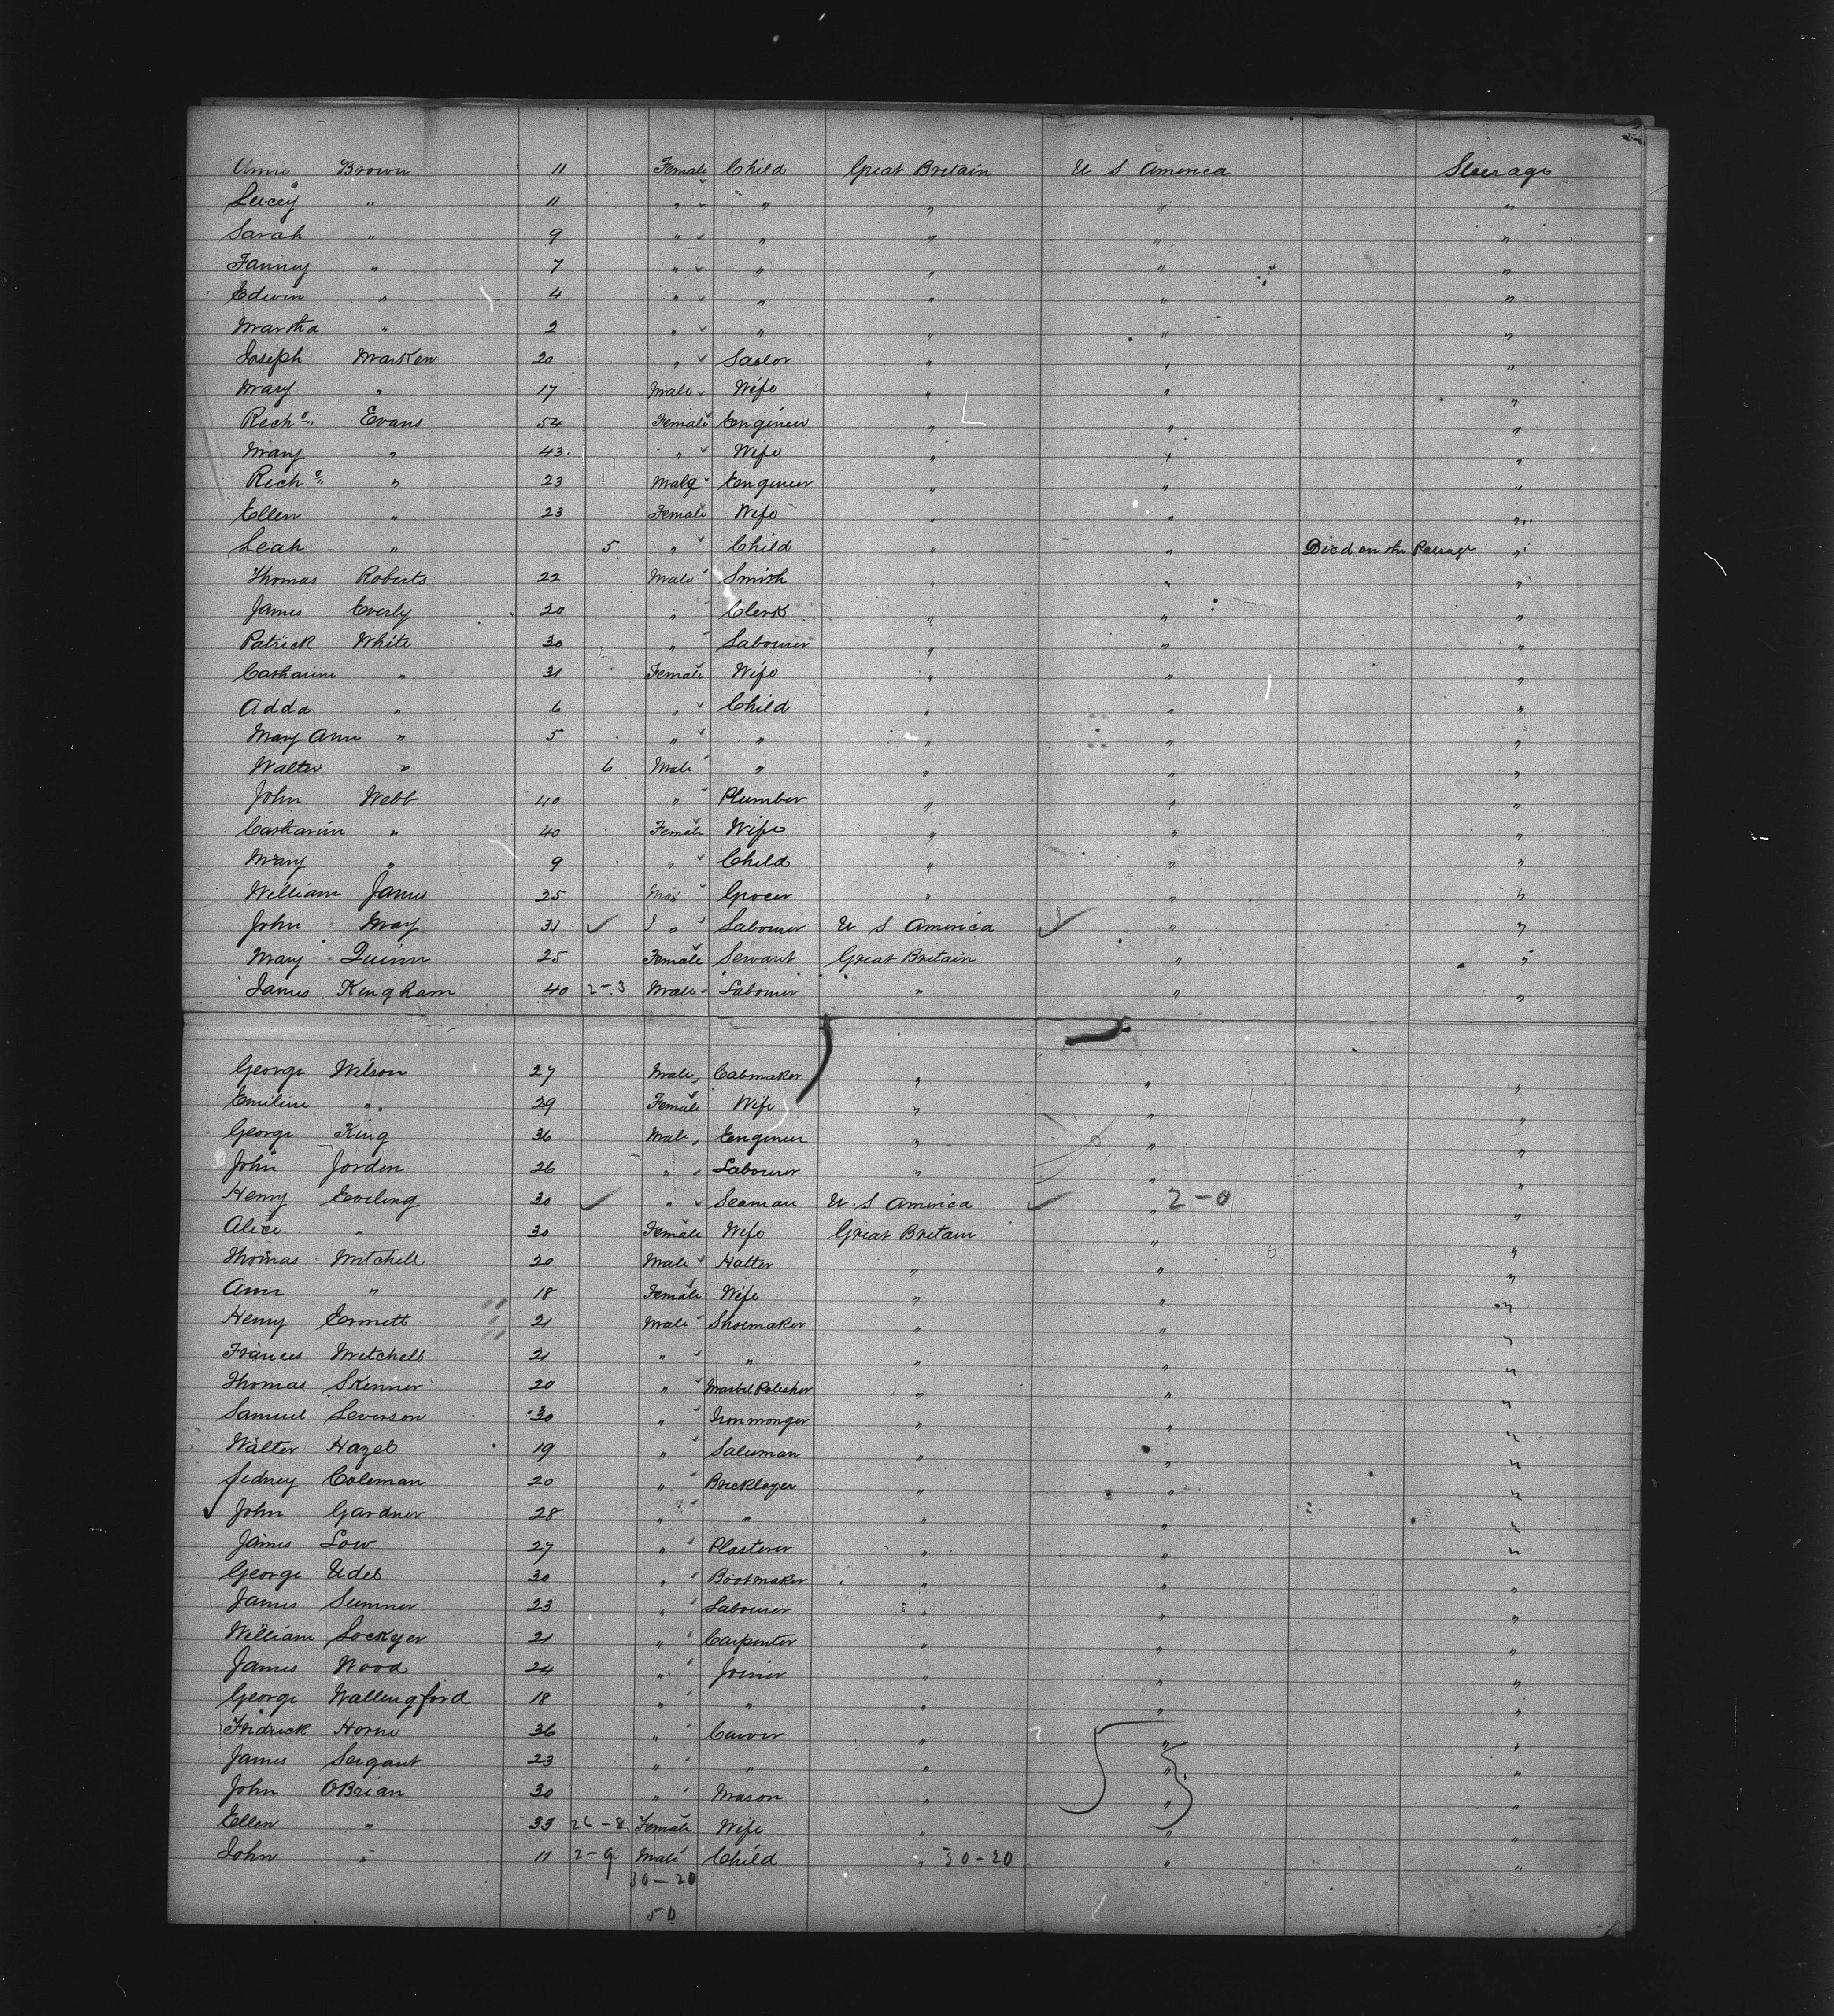 Anne Brown 11 Female Child Great Britain U S America Steerage
Lucey " 11 " " " " "
Sarah " 9 " " " " "
Fanney " 7 " " " " "
Edwin " 4 " " " " "
Martha " 2 " " " " "
Joseph Marken 20 " Sailor " " "
Mary " 17 Male Wife " " "
Rich^d Evans 54 Female Engineer " " "
Mary " 43. " Wife " " "
Rich^d " 23 Male Engineer " " "
Ellen " 23 Female Wife " " "
Leah " 5 " Child " " Died on the Passage "
Thomas Roberts 22 Male Smith " " "
James Everly 20 " Clerk " " "
Patrick White 30 " Labourer " " "
Catharine " 31 Female Wife " " "
Adda " 6 " Child " " "
Mary Ann " 5 " " " " "
Walter " 6 Male " " " "
John Webb 40 " Plumber " " "
Catharine " 40 Female Wife " " "
Mary " 9 " Child " " "
William James 25 Male Grocer " " "
John May 31 " Labourer U S America " "
Mary Quinn 25 Female Servant Great Britain " "
James Kingham 40 2-3 Male Labourer " " "
George Wilson 27 Male Cabmaker " " "
Emiline " 29 Female Wife " " "
George King 36 Male Engineer " " "
John Jorden 26 " Labourer " " "
Henry Eveling 30 " Seaman U.S America " 2-0 "
Alice " 30 Female Wife Great Britain " "
Thomas Mitchell 20 Male Hatter " " "
Ann " 18 Female Wife " " "
Henry Ermett 21 Male Shoemaker " " "
Frances Mitchell 21 " " " " "
Thomas Skinner 20 " Marbel Polisher " " "
Samuel Leverson 30 " Ironmonger " " "
Walter Hazel 19 " Salesman " " "
Sidney Coleman 20 " Bricklayer " " "
John Gardner 28 " " " " "
James Low 27 " Plasterer " " "
George Udel 30 " Bootmaker " " "
James Sumner 23 " Labourer " " "
William Lockyer 21 " Carpenter " " "
James Wood 24 " Joiner " " "
George Wallingford 18 " " " " "
Fridrick Horne 36 " Carver " " "
James Sergant 23 " " " " "
John OBrian 30 " Mason " " "
Ellen " 33 26-8 Female Wife " " "
John " 11 2-9 Male Child " 30-20 " "
30-20
50